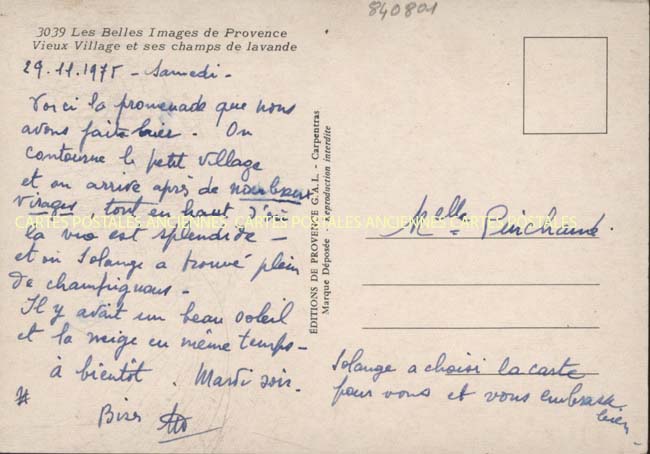 840801
3039 Les Belles Images de Provence
Vieux Village et ses champs de lavande
29.11.1975 - Samedi -
Voici la promenade que nous
avons faite hier. On
contourne le petit village
et on arrive après de nombreux
virages, tout en haut d'où
CARTES POSTALES ANCIENNES CARTES POSTALES ANCIENNES CARTES POSTALES ANCIENNES
la vue est splendide -
et où Solange a trouvé plein
de champignons -
Il y avait un beau soleil
et la neige en même temps -
à bientôt. Mardi soir.
Bises
ÉDITIONS DE PROVENCE G.A.L. - Carpentras
Marque Déposée - Reproduction interdite
Melle
Solange a choisi la carte
pour vous et vous embrasse
bien -